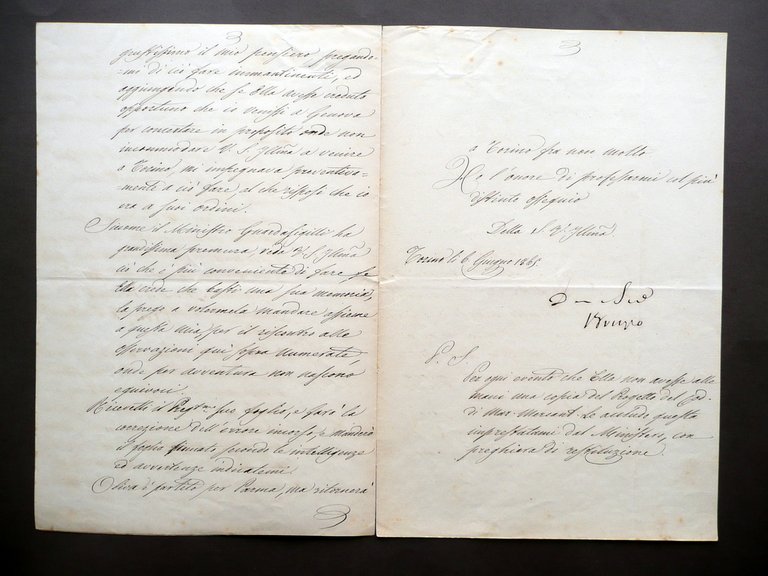 giustissimo il mio pensiero pregando=
=mi di ciò fare immantinenti, ed
aggiungendo che se Ella avesse creduto
opportuno che io venissi a Genova
per concertare in proposito onde non
incommodare V. S. Illma a venire
a Torino, mi impegnava preventiva=
=mente a ciò fare, al che risposi che io
era a suoi ordini.
Siccome il Ministro Guardasigilli ha
grandissima premura, vede V. S. Illma
ciò che è più conveniente di fare se
Ella crede che basti una sua memoria,
la prego a volermela mandare assieme
a questa mia per il riscontro alle
osservazioni qui sopra numerate
onde per avventura non nascono
equivoci.
Ricevetti il foglio, e farò la
correzione dell'errore incorso, e manderò
il foglio firmato secondo le intelligenze
ed avvertenze indicatemi.
è partito per Parma, ma ritornerà
3
a Torino fra non molto
Ho l'onore di professarmi col più
distinto ossequio
Della S. V. Illma
Torino li 6 Giugno 1865.
P. S.
Per ogni evento che Ella non avesse alle
mani una copia del Progetto del Cod.
di Mar. Mercant. Le accludo questa
imprestatami dal Ministero, con
preghiera di restituzione.